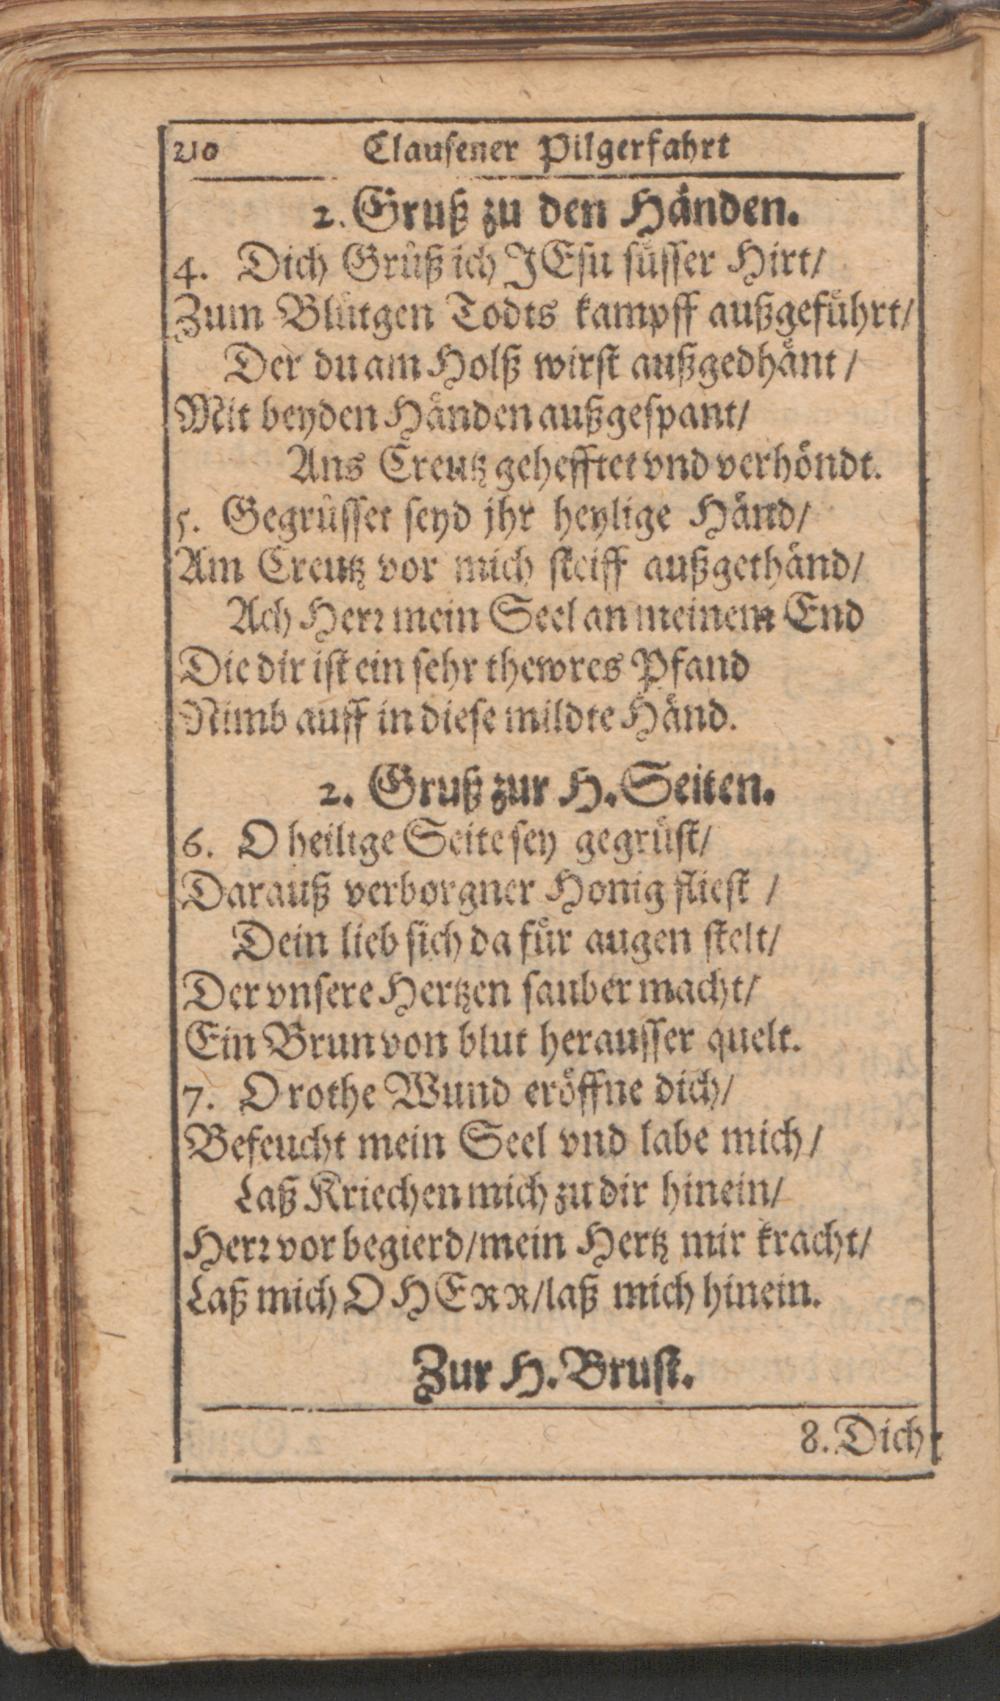 210 Clausener Pilgerfahrt
2. Gruß zu den Händen.
4. Dich Grüß ich JEsu süsser Hirt/
Zum Blütgen Todts kampff außgeführt/
Der du am Holß wirst außgedhänt /
Mit beyden Händen außgespant/
Ans Creutz gehefftet vnd verhöndt.
5. Gegrüsset seyd jhr heylige Händ/
Am Creutz vor mich steiff außgethänd/
Ach Herr mein Seel an meinem End
Die dir ist ein sehr thewres Pfand
Nimb auff in diese mildte Händ.
2. Gruß zur H. Seiten.
6. O heilige Seite sey gegrüst/
Darauß verborgner Honig fliest /
Dein lieb sich da für augen stelt/
Der vnsere Hertzen sauber macht/
Ein Brun von blut herausser quelt.
7. O rothe Wund eröffne dich/
Befeucht mein Seel vnd labe mich/
Laß Kriechen mich zu dir hinein/
Herr vor begierd/mein Hertz mir kracht/
Laß mich O HERR/laß mich hinein.
Zur H. Brust.
8. Dich